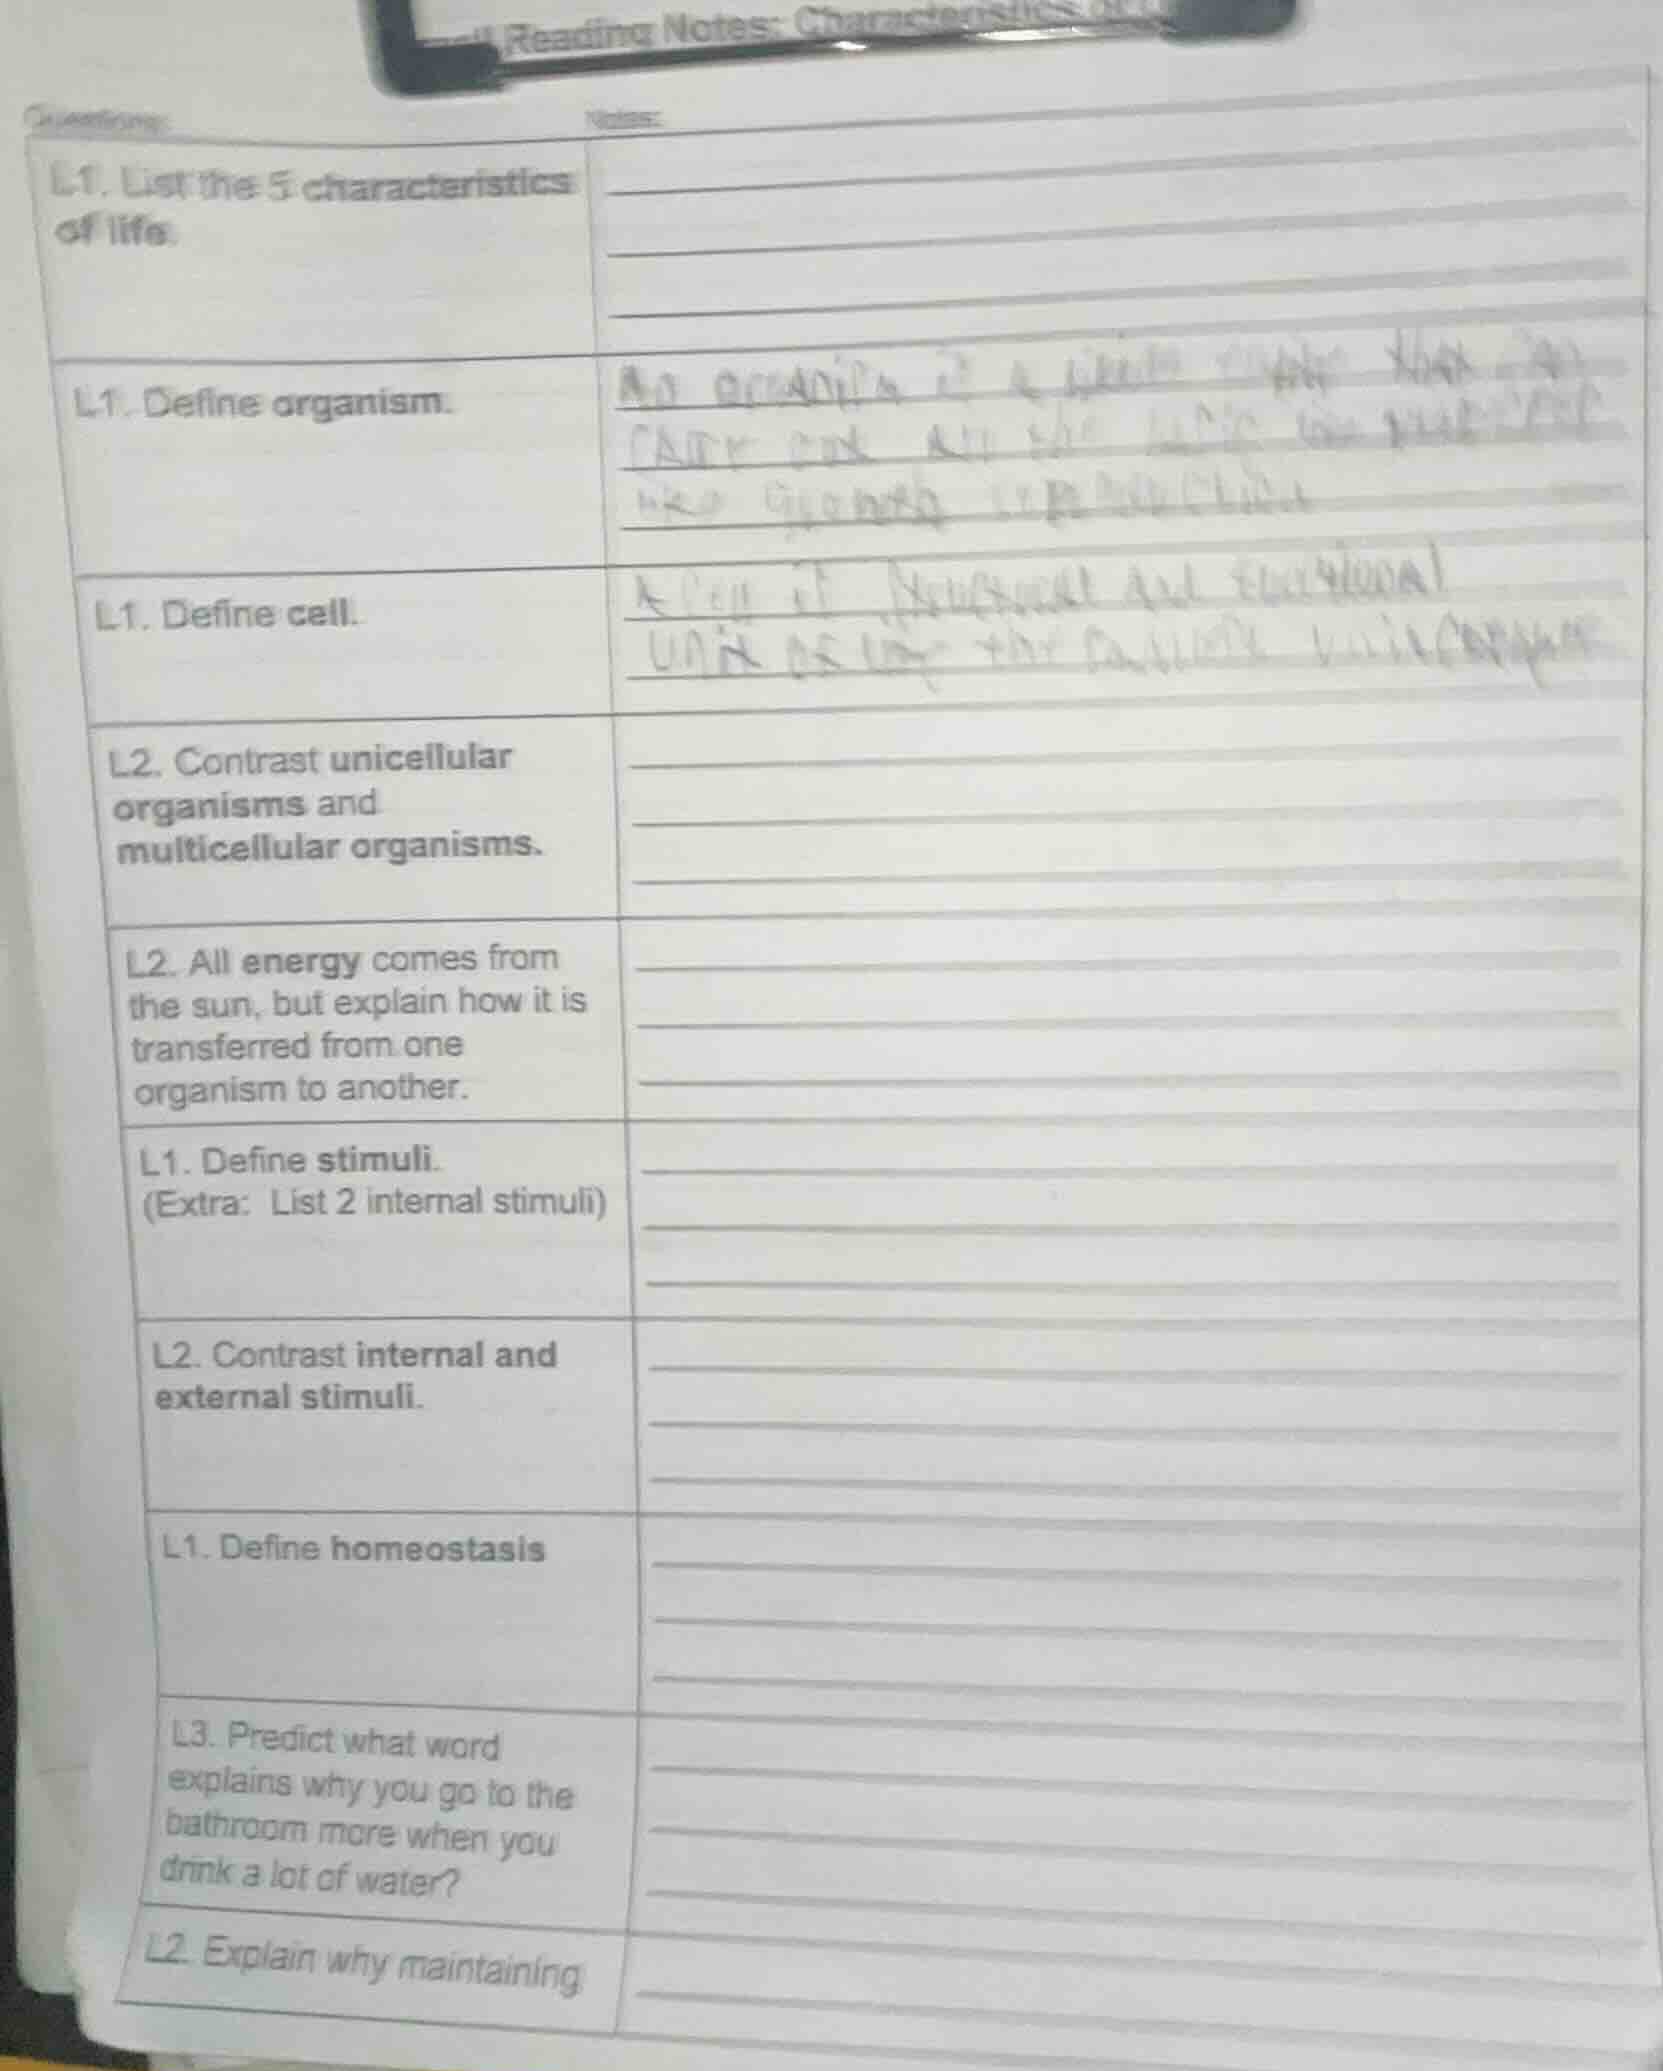 Reading Notes: Characteristics of
Questions: Notes:
L1. List the 5 characteristics
of life.
L1. Define organism.
is a that
out all the
like Growth reproduction
L1. Define cell.
A Cell is structural and functional
Unit of
L2. Contrast unicellular
organisms and
multicellular organisms.
L2. All energy comes from
the sun, but explain how it is
transferred from one
organism to another.
L1. Define stimuli.
(Extra: List 2 internal stimuli)
L2. Contrast internal and
external stimuli.
L1. Define homeostasis
L3. Predict what word
explains why you go to the
bathroom more when you
drink a lot of water?
L2. Explain why maintaining